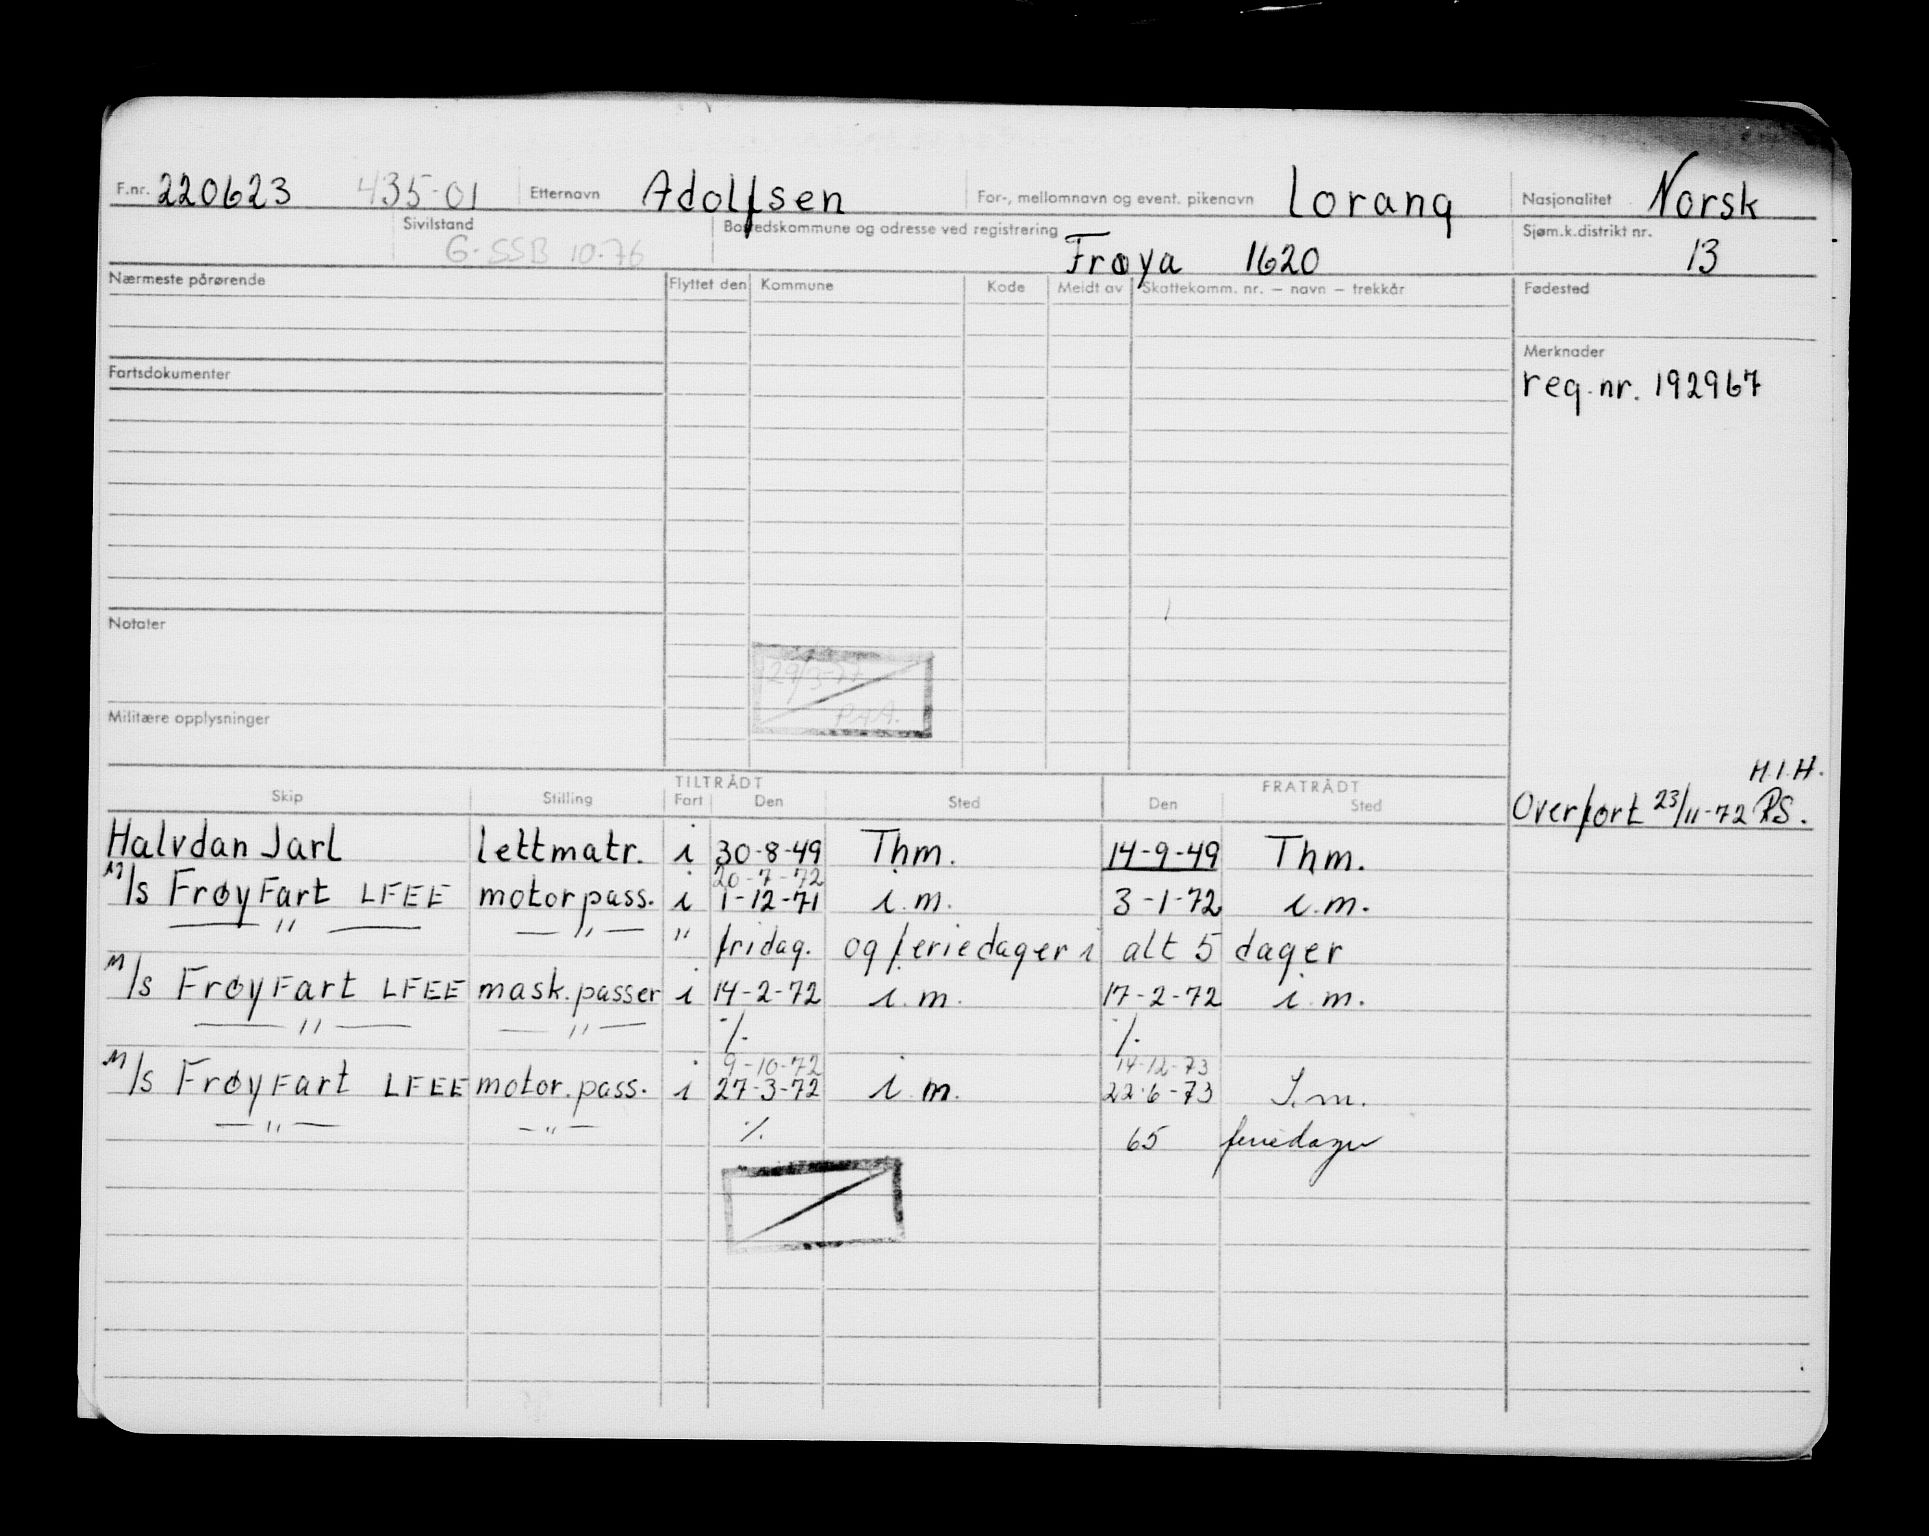 F.nr. 220623 435-01 Etternavn Adolfsen For-, mellomnavn og event. pikenavn Lorang Nasjonalitet Norsk
Sivilstand G. SSB 10-76 Bostedskommune og adresse ved registrering Frøya 1620 Sjøm.k.distrikt nr. 13
Nærmeste pårørende Flyttet den Kommune Kode Meldt av Skattekomm. nr. – navn – trekkår Fødested
Merknader
Fartsdokumenter
reg.nr. 192967
Notater
29/3-77
P.A.A.
Militære opplysninger
H.I.H.
Overført 23/11-72 RS.
TILTRÅDT FRATRÅDT
Skip Stilling Fart Den Sted Den Sted
Halvdan Jarl lettmatr. i 30-8-49 Thm. 14-9-49 Thm.
20-7-72
M/s FrøyFart LFEE motorpass. i 1-12-71 i.m. 3-1-72 i.m.
— " — — " — " fridag. og feriedager i alt 5 dager
M/s FrøyFart LFEE mask.passer i 14-2-72 i.m. 17-2-72 i.m.
— " — — " — ./. ./.
9-10-72 14-12-73
M/s FrøyFart LFEE motor.pass. i 27-3-72 i.m. 22-6-73 I.m.
— " — — " — ./. 65 feriedager